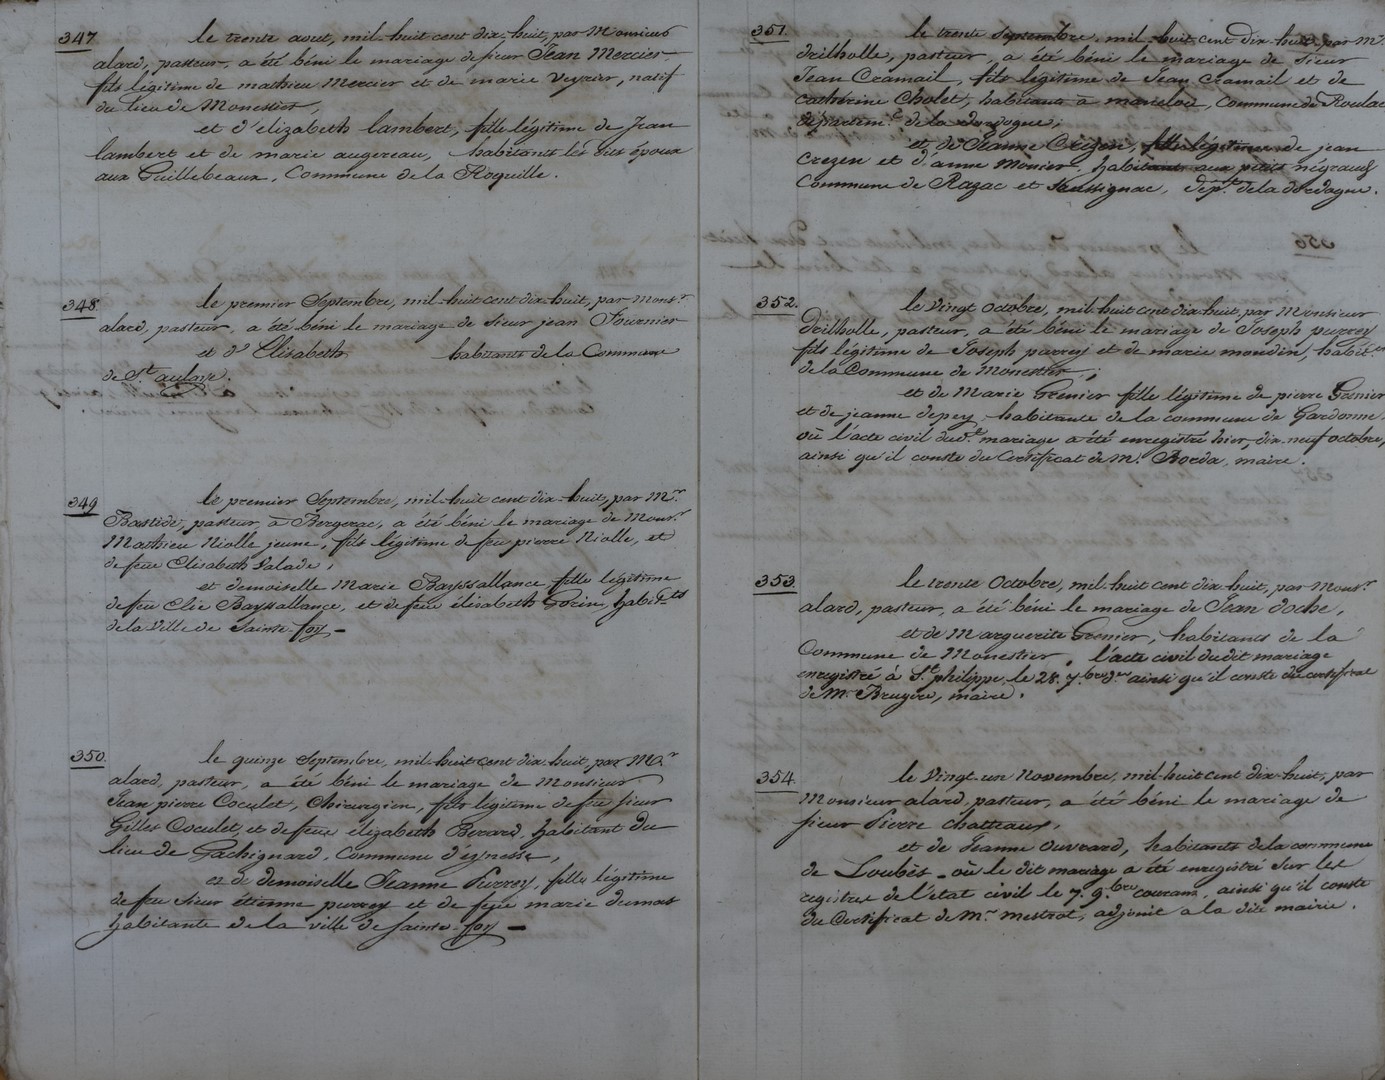 347. le trente aout, mil-huit cent dix-huit, par Monsieur
alard, pasteur, a été béni le mariage de sieur Jean Mercier
fils légitime de mathieu Mercier et de marie Veyrier, natif
du lieu de Monestier,
et d'élizabeth lambert, fille légitime de Jean
lambert et de marie augereau, habitants les dits époux
aux Guillebeaux, Commune de la Roquille.
348. le premier Septembre, mil-huit cent dix-huit, par Monsr.
alard, pasteur, a été béni le mariage de sieur jean Fournier
et d'Elisabeth habitants de la Commune
de St. aulaye.
349 le premier Septembre, mil-huit cent dix-huit, par Mr.
Bastide, pasteur, à Bergerac, a été béni le mariage de Monsr.
Mathieu Niolle jeune, fils légitime de feu pierre Niolle, et
de feue Elisabeth Valade;
et demoiselle Marie Bayssallance, fille légitime
de feu Elie Bayssallance, et de feue élisabeth Gorin, habitts
de la Ville de Sainte-foy —
350. le quinze Septembre, mil-huit cent dix-huit, par Mr.
alard, pasteur, a été béni le mariage de Monsieur
Jean pierre Coculet, Chirurgien, fils légitime de feu sieur
Gilles Coculet, et de feue élizabeth Berard, habitant du
lieu de Gachignard, Commune d'eynesse,
et de demoiselle Jeanne Purrey, fille légitime
de feu Sieur étienne purrey et de feue marie dumas
habitante de la ville de Sainte-foy —
351. le trente Septembre, mil-huit cent dix-huit, par Mr.
drilholle, pasteur, a été béni le mariage de sieur
Jean Cramail, fils légitime de Jean Cramail et de
cathérine Cholet, habitants à , Commune de
départemt. de la dordogne;
et de Jeanne Crezen, fille légitime de jean
Crezen et d'anne Monier, habitants aux petits négrauds
Commune de Razac et Saussignac, dépt. de la dordogne.
352. le Vingt Octobre, mil-huit cent dix-huit, par Monsieur
Drilholle, pasteur, a été béni le mariage de Joseph purrey
fils légitime de Joseph purrey et de marie moudin, habitts
de la Commune de Monestier;
et de Marie Grenier fille légitime de pierre Grenier
et de jeanne depey, habitante de la commune de Gardonne
où l'acte civil du dt. mariage a été enregistré hier, dix-neuf octobre,
ainsi qu'il conste du Certificat de M. Borda, maire.
353. le trente Octobre, mil-huit cent dix-huit, par Monsr.
alard, pasteur, a été béni le mariage de Jean Doche,
et de Marguerite Grenier, habitants de la
Commune de Monestier, l'acte civil du dit mariage
enregistré à St. philippe, le 28. 7.bre dr. ainsi qu'il conste du certificat
de Mr Bruyere, maire.
354. le Vingt-un Novembre, mil-huit cent dix-huit, par
Monsieur alard, pasteur, a été béni le mariage de
sieur Pierre chatteaux,
et de Jeanne Ouvrard, habitants de la commune
de Loubès - où le dit mariage a été enregistré sur les
registres de l'état civil le 7. 9.bre courant, ainsi qu'il conste
du Certificat de Mr. mestrot, adjoint à la dite mairie.